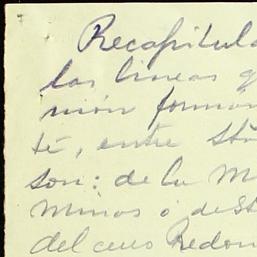 Recapitula
las lineas q
nión forman
té, entre Sta
son: de la M
Minas ó de St
del cerro Redon